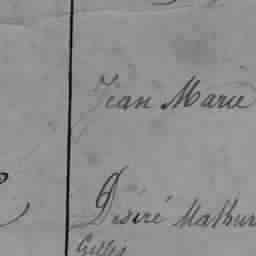 Jean Marie
Désiré Mathur
Gilles